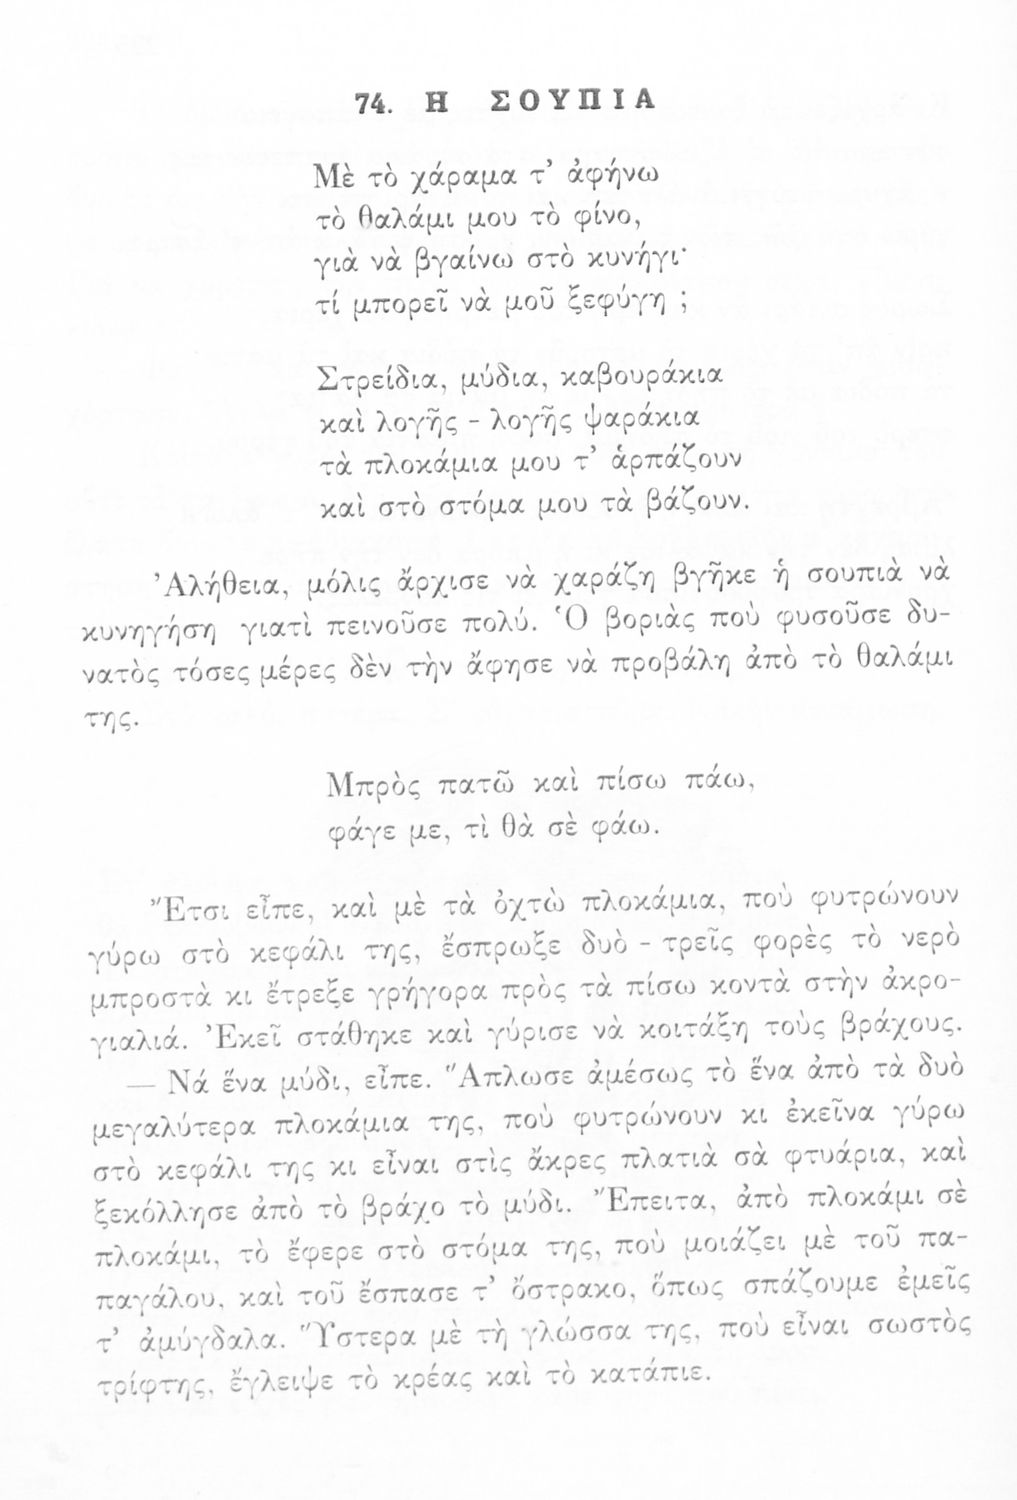 74. Η ΣΟΥΠΙΑ
Μὲ τὸ χάραμα τ’ ἀφήνω
τὸ θαλάμι μου τὸ φίνο,
γιὰ νὰ βγαίνω στὸ κυνήγι·
τί μπορεῖ νὰ μοῦ ξεφύγη ;
Στρείδια, μύδια, καβουράκια
καὶ λογῆς - λογῆς ψαράκια
τὰ πλοκάμια μου τ’ ἁρπάζουν
καὶ στὸ στόμα μου τὰ βάζουν.
Ἀλήθεια, μόλις ἄρχισε νὰ χαράζη βγῆκε ἡ σουπιὰ νὰ
κυνηγήση γιατὶ πεινοῦσε πολύ. Ὁ βοριὰς ποὺ φυσοῦσε δυ-
νατὸς τόσες μέρες δὲν τὴν ἄφησε νὰ προβάλη ἀπὸ τὸ θαλάμι
της.
Μπρὸς πατῶ καὶ πίσω πάω,
φάγε με, τὶ θὰ σὲ φάω.
Ἔτσι εἶπε, καὶ μὲ τὰ ὀχτὼ πλοκάμια, ποὺ φυτρώνουν
γύρω στὸ κεφάλι της, ἔσπρωξε δυὸ - τρεῖς φορὲς τὸ νερὸ
μπροστὰ κι ἔτρεξε γρήγορα πρὸς τὰ πίσω κοντὰ στὴν ἀκρο-
γιαλιά. Ἐκεῖ στάθηκε καὶ γύρισε νὰ κοιτάξη τοὺς βράχους.
— Νά ἕνα μύδι, εἶπε. Ἅπλωσε ἀμέσως τὸ ἕνα ἀπὸ τὰ δυὸ
μεγαλύτερα πλοκάμια της, ποὺ φυτρώνουν κι ἐκεῖνα γύρω
στὸ κεφάλι της κι εἶναι στὶς ἄκρες πλατιὰ σὰ φτυάρια, καὶ
ξεκόλλησε ἀπὸ τὸ βράχο τὸ μύδι. Ἔπειτα, ἀπὸ πλοκάμι σὲ
πλοκάμι, τὸ ἔφερε στὸ στόμα της, ποὺ μοιάζει μὲ τοῦ πα-
παγάλου, καὶ τοῦ ἔσπασε τ’ ὄστρακο, ὅπως σπάζουμε ἐμεῖς
τ’ ἀμύγδαλα. Ὕστερα μὲ τὴ γλώσσα της, ποὺ εἶναι σωστὸς
τρίφτης, ἔγλειψε τὸ κρέας καὶ τὸ κατάπιε.